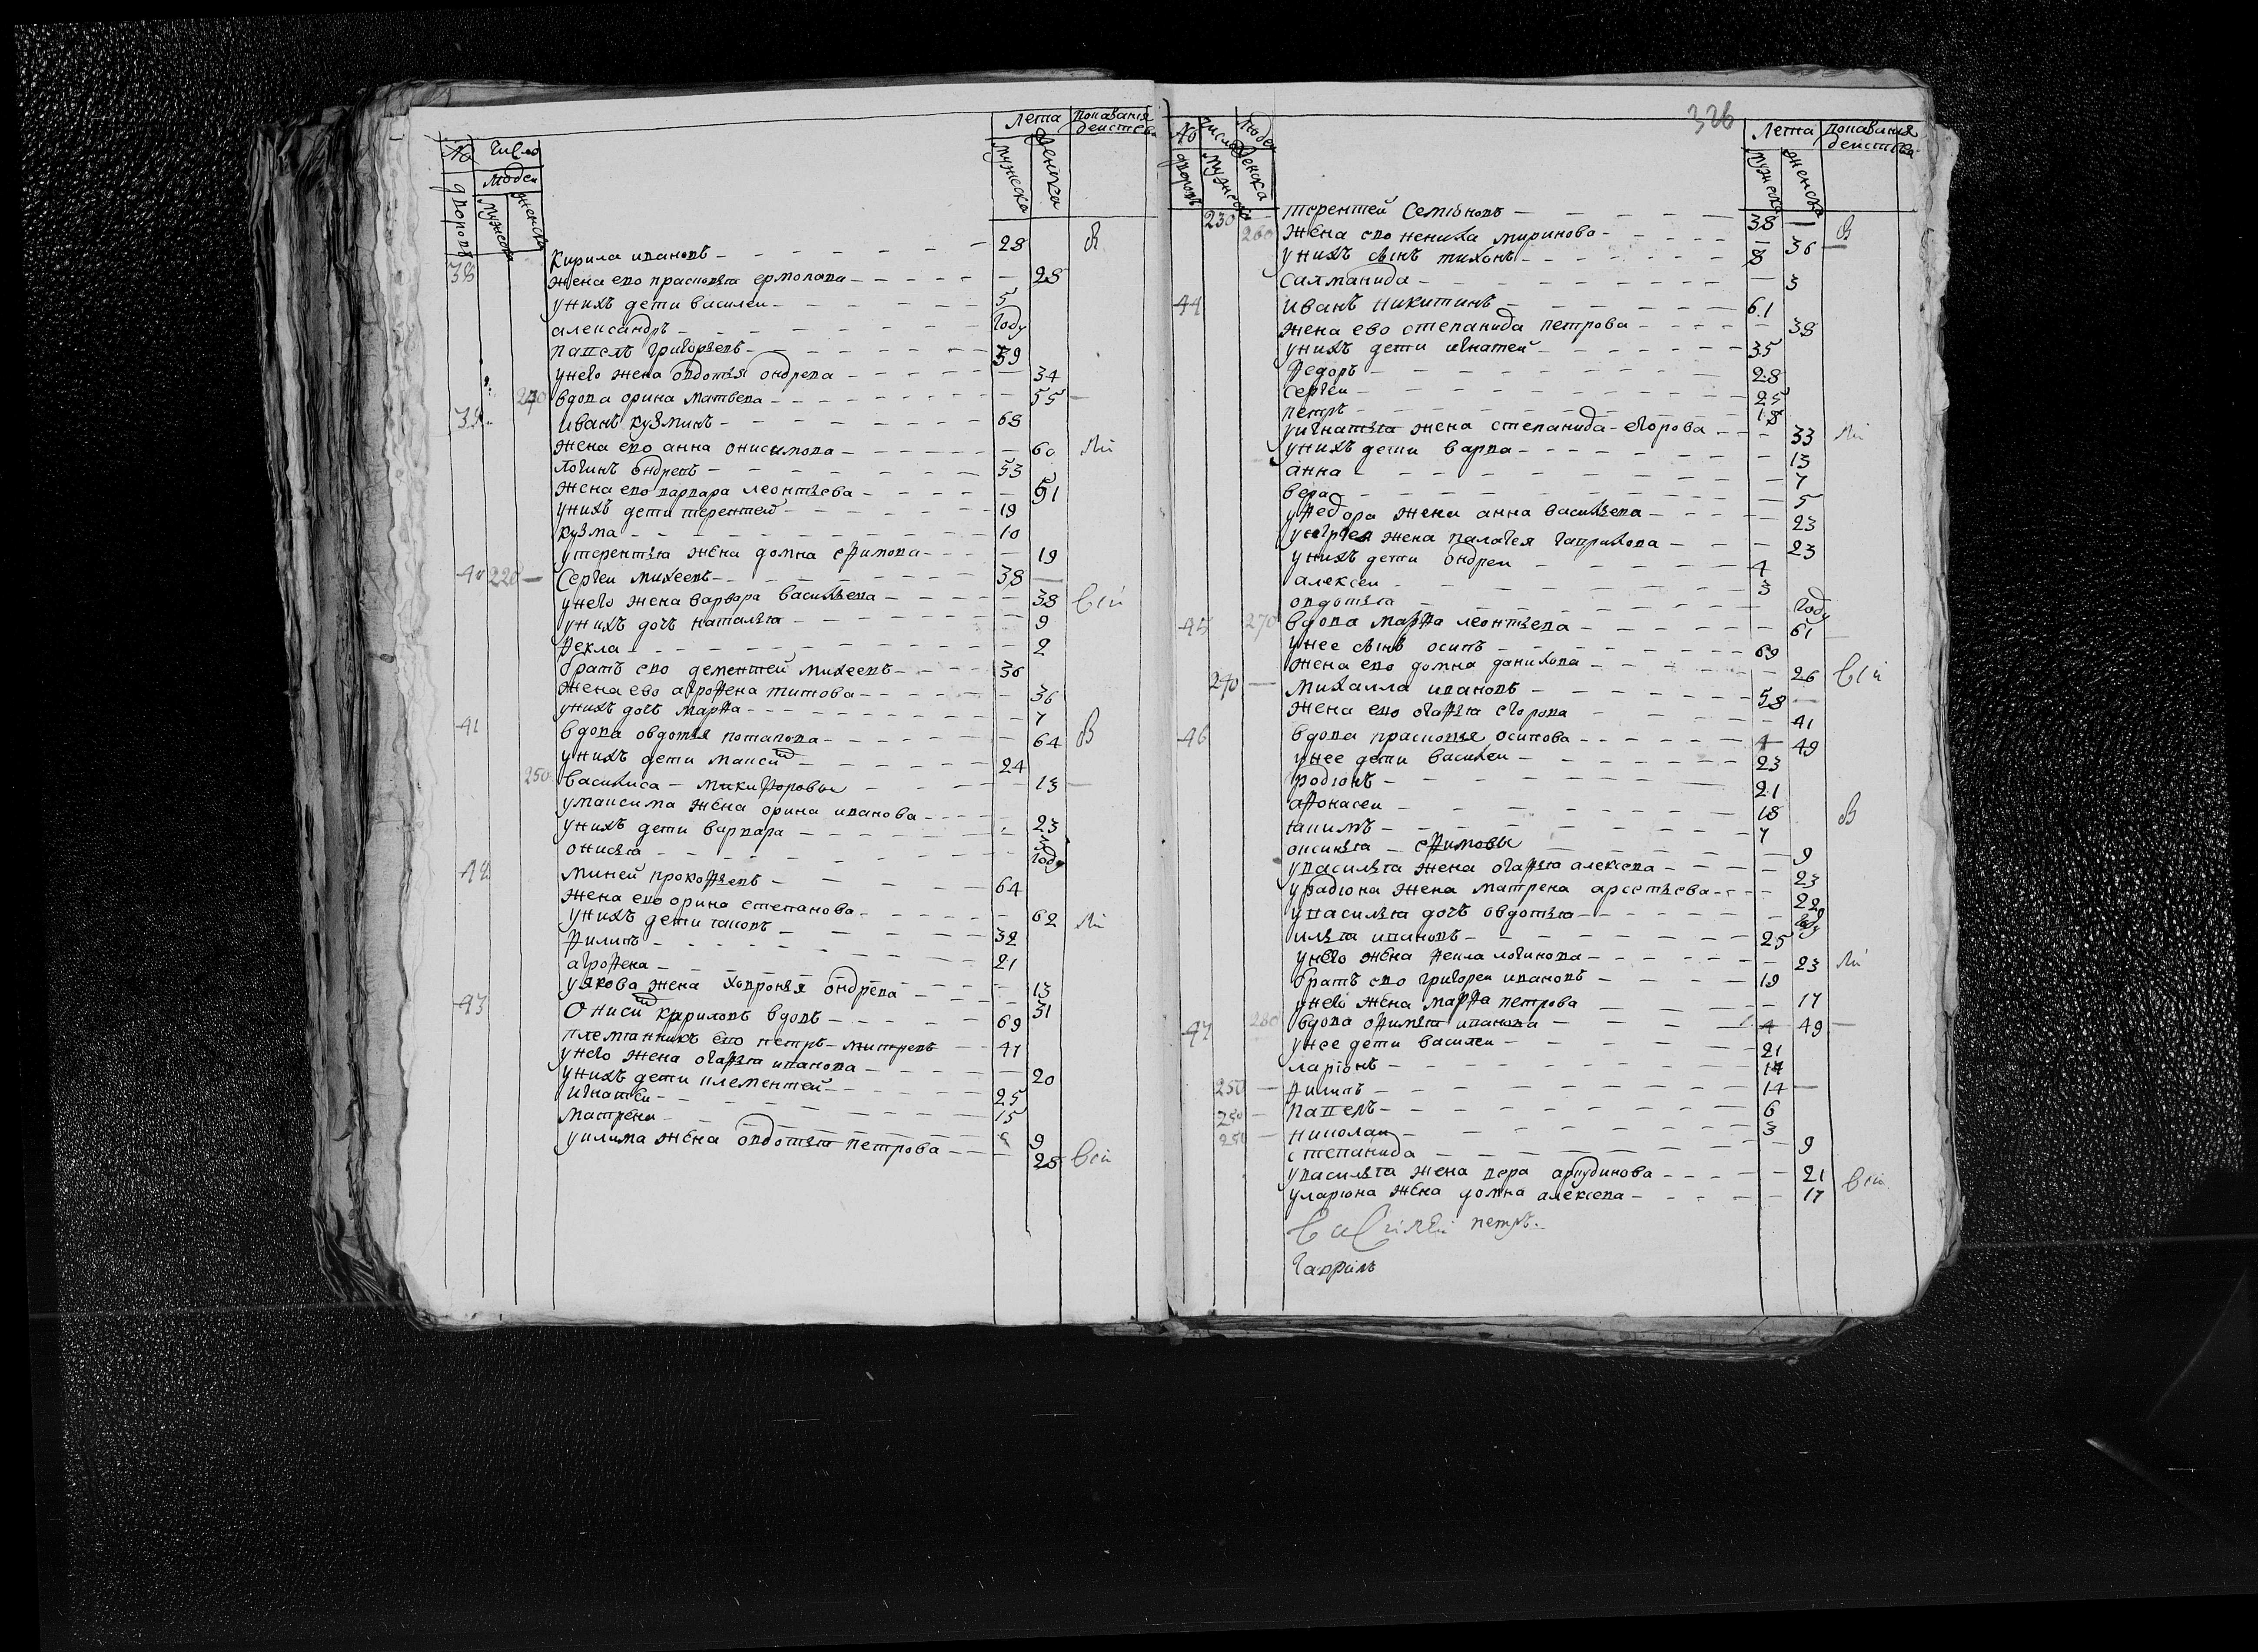 № Число Лета показания
дворовъ людеи мужеска женска действа
мужеска женска
38 Кирила ивановъ 28
жена ево прасковья ермолаева 28
у нихъ дети василеи 5
александръ году
павелъ григорьевъ 39
у него жена овдотья ондреева 34
240 вдова орина матвеева 55
39 иванъ кузминъ 68
жена ево анна онисимова 60
логинъ ондреевъ 53
жена ево варвара леонтьева 51
у нихъ дети терентей 19
кузма 10
у терентья жена домна ефимова 19
40 220 Сергеи михеевъ 38
у него жена варвара васильева 38
у нихъ дочь наталья 9
фекла 2
братъ ево дементей михеевъ 36
жена ево агрофена титова 36
у нихъ дочь марфа 7
41 вдова овдотья потапова 64 В
у нихъ дети максим 24
250 василиса микифоровы 13
у максима жена орина иванова 23
у нихъ дети варвара 3
онисья году
42 миней прокофьевъ 64
жена ево орина степанова 62
у нихъ дети яковъ 32
филипъ 21
агрофена 13
у якова жена хавронья ондреева 31
43 Онисим кириловъ вдовъ 69
племянникъ ево петръ митреевъ 47
у него жена огафья иванова 20
у нихъ дети клементей 25
игнатеи 15
матрена 9
у клима жена овдотья петрова 25
326
№ число людеи Лета показания
дворовъ мужеска женска мужеска женска действа
230 терентей Семёновъ 38
260 жена ево ненила миринова 36
у нихъ сынъ тихонъ 8
салманида 3
44 иванъ никитинъ 61
жена ево степанида петрова 38
у нихъ дети игнатей 35
федоръ 28
сергеи 25
петръ 18
у игнатья жена степанида егорова 33
у нихъ дети варва 13
анна 7
вера 5
у федора жена анна васильева 23
у сергея жена палагея гаврилова 23
у нихъ дети ондреи 4
алексеи 3
овдотья году
45 270 вдова марфа леонтьева 61
у нее сынъ осипъ 69
жена ево домна данилова 26
240 михаила ивановъ 58
жена ево огафья егорова 41
46 вдова прасковья осипова 49
у нее дети василеи 23
родионъ 21
афонасеи 18 В
якимъ 7
оксинья ефимовы 9
у василья жена огафья алексеева 23
у радиона жена матрена арсетьева 22
у василья дочь овдотья году
илья ивановъ 25
у него жена фекла логинова 23
братъ ево григореи ивановъ 19
у него жена марфа петрова 17
47 280 вдова офимья иванова 49
у нее дети василеи 21
ларионъ 17
250 филипъ 14
250 павелъ 6
250 николаи 3
степанида 9
у василья жена вера аркудинова 21
у лариона жена домна алексеева 17
петръ
гаврилъ